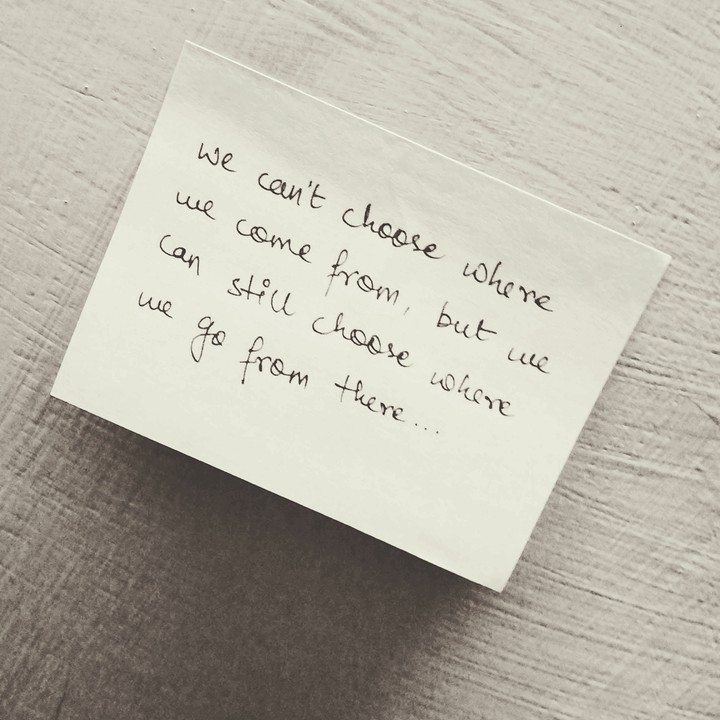 we can't choose where
we come from, but we
can still choose where
we go from there...